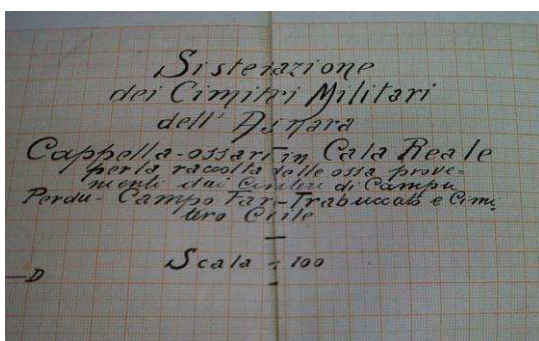 Sistemazione
dei Cimiteri Militari
dell' Asinara
Cappella-ossari in Cala Reale
per la raccolta delle ossa prove-
nienti dai Cimiteri di Campu
Perdu - Campo Faro - Trabuccato e Cimi-
tero Civile
Scala 1:100
D